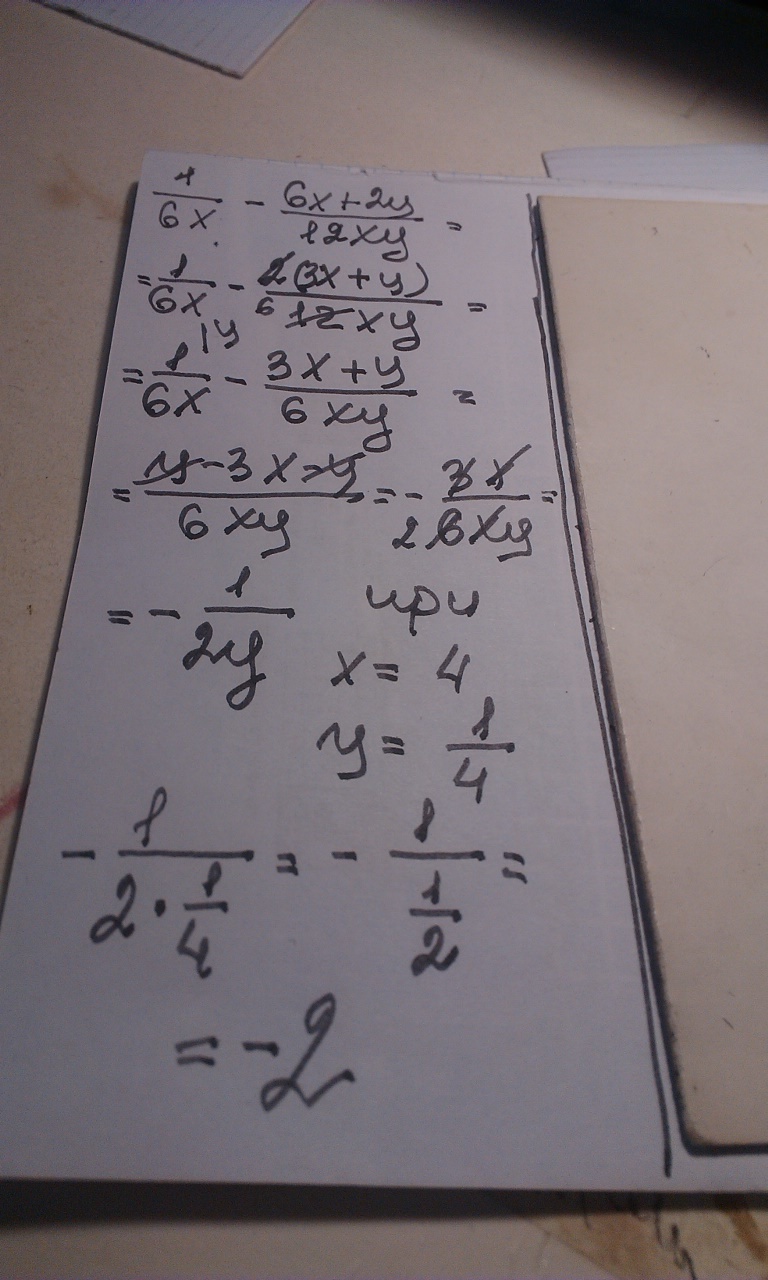 1/6x - 6x+2y/12xy =
= 1/6x - 2(3x+y)/6 12xy =
= 1/6x |y - 3x+y/6xy =
= y-3x-y/6xy = - 3x/2 6xy =
= - 1/2y при
x = 4
y = 1/4
- 1/2·1/4 = - 1/1/2 =
= -2